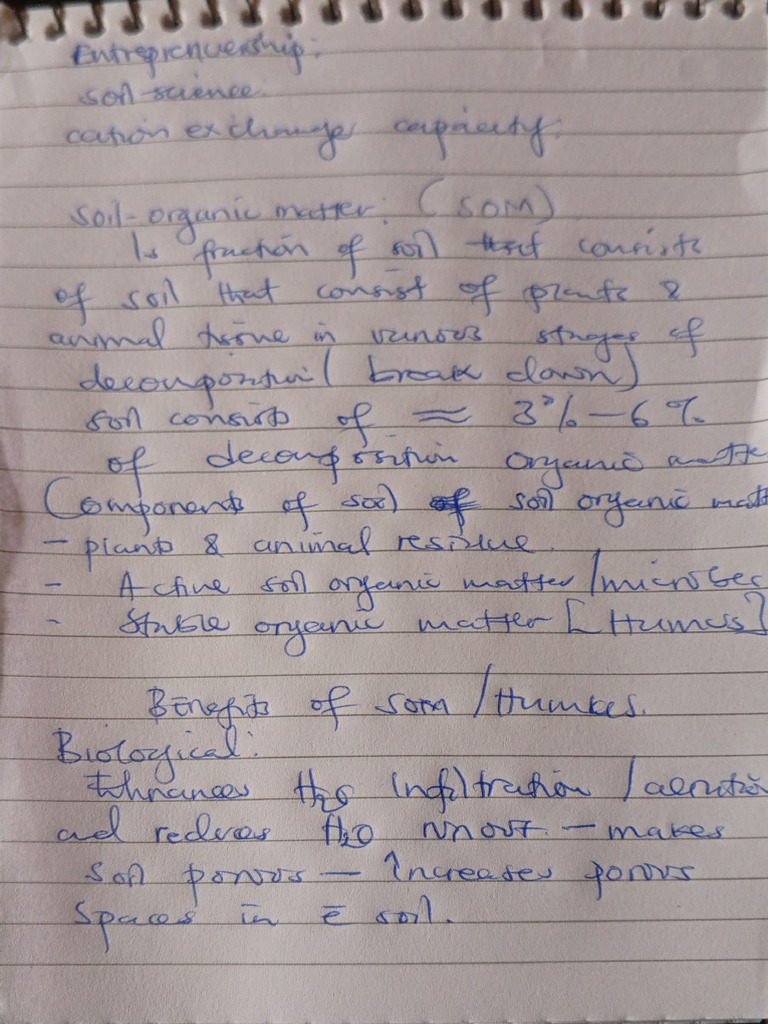 Entreprenuership:
soil-science:
cation exchange capacity:
soil-organic matter: (SOM)
Is fraction of soil that consists
of soil that consist of plants &
animal tissue in various stages of
decomposition (break down)
soil consists of ≈ 3%-6%
of decomposition organic matte
Components of soil of soil organic matt
- plants & animal residue.
- Active soil organic matter/microbes
- Stable organic matter [Humus]
Benefits of som/Humus.
Biological:
Ehnances H2O infiltration/aeratio
and reduces H2O runoff - makes
soil porous - increases porous
spaces in ē soil.